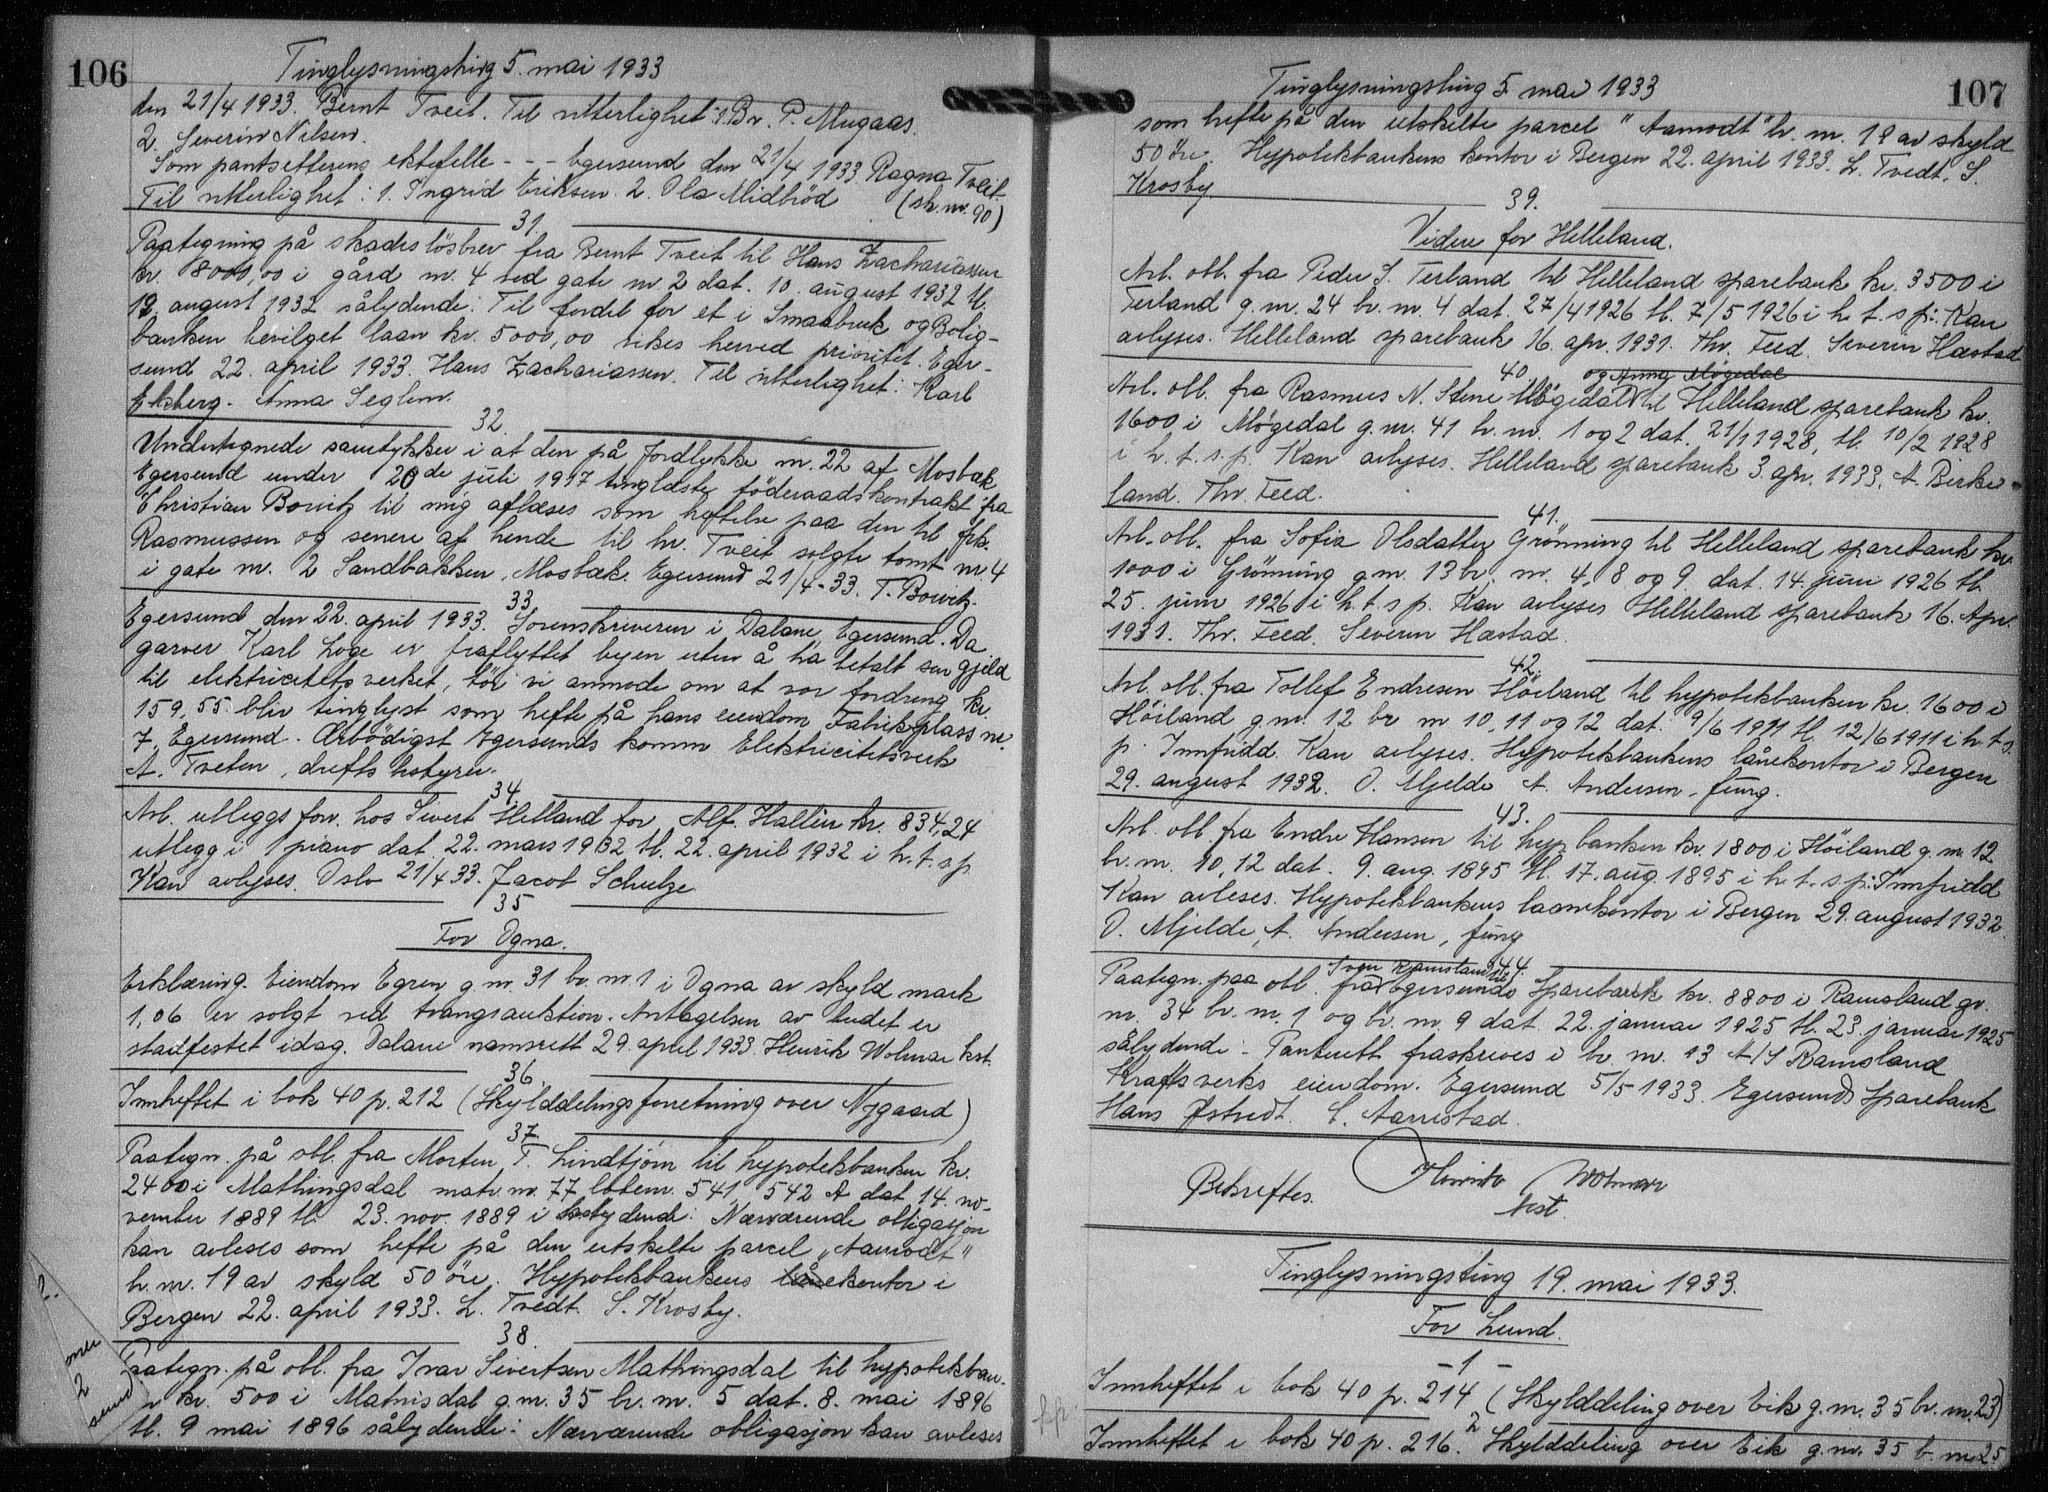 106
Tinglysningsting 5. mai 1933
den 21/4 1933. Bernt Tveit. Til vitterlighet: 1. Br. P. Mugaas.
2. Severin Nilsen.
Som pantsetterens ektefelle - - - Egersund den 21/4 1933. Ragna Tveit.
Til vitterlighet: 1. Ingrid Eriksen. 2. Ola Midbröd (sk. nr. 90)
31.
Paategning på skadeslösbrev fra Bernt Tveit til Hans Zachariassen
kr. 8000,00 i gård nr. 4 ved gate nr 2 dat. 10. august 1932 tl.
12 august 1932 sålydende: Til fordel for et i Smaabruk og Bolig-
banken bevilget laan kr. 5000,00 vikes herved prioritet. Eger-
sund 22. april 1933. Hans Zachariassen. Til vitterlighet: Karl
Ekberg. Anna Seglem.
32.
Undertegnede samtykker i at den på Jordlykke nr. 22 af Mosbæk
Egersund under 20de juli 1917 tinglæste föderaadskontrakt fra
Christian Bowitz til mig aflæses som heftelse paa den til frk.
Rasmussen og senere af hende til hr. Tveit solgte tomt nr 4
i gate nr. 2 Sandbakken, Mosbæk. Egersund 21/4-33. T. Bowitz.
33
Egersund den 22. april 1933. Sorenskriveren i Dalane, Egersund. Da
garver Karl Loge er fraflyttet byen uten å ha betalt sin gjeld
til elektricitetsverket, tör vi anmode om at vor fordring kr.
159,55 bliv tinglyst som hefte på hans eiendom Fabrikplass nr.
7, Egersund. Ærbödigst Egersunds komm. Elektricitetsverk
A. Tveten, driftsbstyrer.
34.
Avl. utleggsforr. hos Sivert Helland for Alf. Hallin kr. 834,24
utlegg i 1 piano dat. 22. mars 1932 tl. 22. april 1932 i h. t. s. p.
Kan avlyses. Oslo 21/4 33. Jacob Schulze
35
For Ogna.
Erklæring. Eiendom Egren g. nr. 31 br. nr 1 i Ogna av skyld mark
1,06 er solgt ved tvangsauktion. Antagelsen av budet er
stadfestet idag. Dalane namsrett 29. april 1933. Henrik Wolmar kst.
36.
Innheftet i bok 40 p. 212 (Skylddelingsforretning over Nygaard)
37
Paategn. på obl. fra Morten T. Lindtjörn til hypotekbanken kr.
2400 i Mathingsdal matr. nr. 77 lbtenr. 541, 542 A dat 14. no-
vember 1889 tl. 23. nov. 1889 i sålydende: Nærværende obligasjon
kan avleses som hefte på den utskilte parcel „Aamodt"
b. nr. 19 av skyld 50 öre. Hypotekbankens lånekontor i
Bergen 22. april 1933. L. Tvedt. S. Krosby.
38.
Paategn. på obl. fra Ivar Sivertsen Mathingsdal til hypotekban-
kr. 500 i Matnisdal g. nr. 35 br. nr. 5 dat. 8. mai 1896
tl. 9 mai 1896 sålydende: Nærværende obligasjon kan avleses
107
Tinglysningsting 5. mai 1933
som hefte på den utskilte parcel "Aamodt" b. nr. 19 av skyld
50 öre. Hypotekbankens kontor i Bergen 22. april 1933. L. Tvedt. S.
Krosby.
39.
Videre for Helleland.
Avl. obl. fra Peder J. Terland til Helleland sparebank kr. 3500 i
Terland g. nr. 24 br. nr. 4 dat. 27/4 1926 tl. 7/5 1926 i h. t. s p: Kan
avlyses. Helleland sparebank 16. apr. 1931. Thv. Feed. Severin Hæstad
40 og Anna Mögedal
Avl. obl. fra Rasmus N. Stene Mögedal til Helleland sparebank kr.
1600 i Mögedal g. nr. 41 b. nr. 1 og 2 dat. 21/1 1928, tl. 10/2 1928
i h. t. s. p. Kan avlyses. Helleland sparebank 3. apr. 1933. A. Birke-
land. Thv. Feed.
41.
Avl. obl. fra Sofia Olsdatter Grönning til Helleland sparebank kr.
1000 i Grönning g. nr. 13 br. nr. 4, 8 og 9 dat. 14. juni 1926 tl.
25. juni 1926 i h. t. s p. Kan avlyses Helleland sparebank 16. Apr.
1931. Thv. Feed. Severin Hæstad.
42.
Avl. obl. fra Tollef Endresen Höiland til hypotekbanken kr. 1600 i
Höiland g. nr. 12 br nr 10, 11 og 12 dat. 9/6 1911 tl. 12/6 1911 i h. t. s.
p. Innfridd. Kan avlyses. Hypotekbankens lånekontor i Bergen
29. august 1932. O. Mjelde A. Andersen, fung.
43.
Avl. obl fra Endre Hansen til hyp banken kr. 1800 i Höiland g. nr 12
br. nr. 10, 12 dat. 9. aug. 1895 tl. 17. aug. 1895 i h. t. s. p: Innfridd
Kan avleses. Hypotekbankens laanekontor i Bergen 29. august 1932.
O. Mjelde, A. Andersen, fung
44.
Sven Ramsland til
Paategn. paa obl. fra Egersunds Sparebank kr. 8800 i Ramsland gr.
nr. 34 br. nr. 1 og br. nr. 9 dat. 22. januar 1925 tl. 23. januar 1925
sålydende: Panterett fraskrives i br nr. 13 A/S Ramsland
Kraftsverks eiendom. Egersund 5/5 1933. Egersunds Sparebank
Hans Østvedt. C. Aarrestad.
Bekreftes.
Henrik Wolmar
kst.
Tinglysningsting 19. mai 1933.
For Lund.
-1-
Innheftet i bok 40 p. 214 (Skylddeling over Eik g. nr. 35 br. nr. 23)
2
Innheftet i bok 40 p. 216. Skylddeling over Eik g. nr. 35 b. nr 25